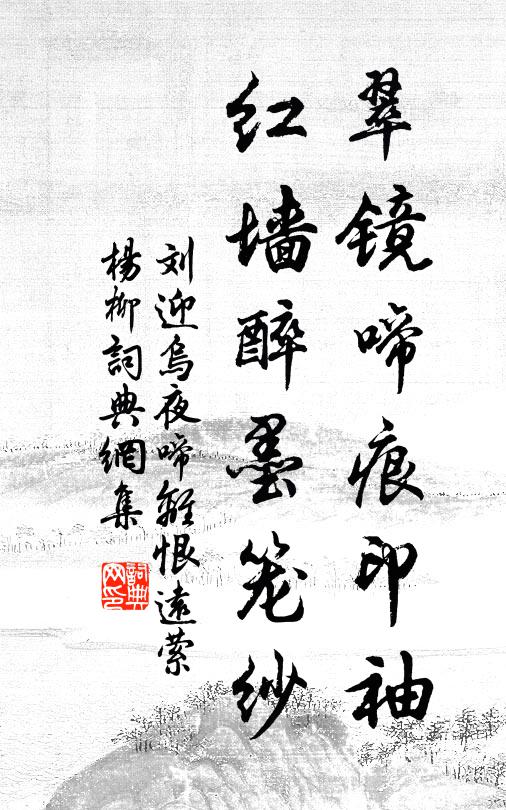 翠镜啼痕印袖
红墙醉墨笼纱
刘迎乌夜啼离恨远萦
杨柳词典网集
词典网印